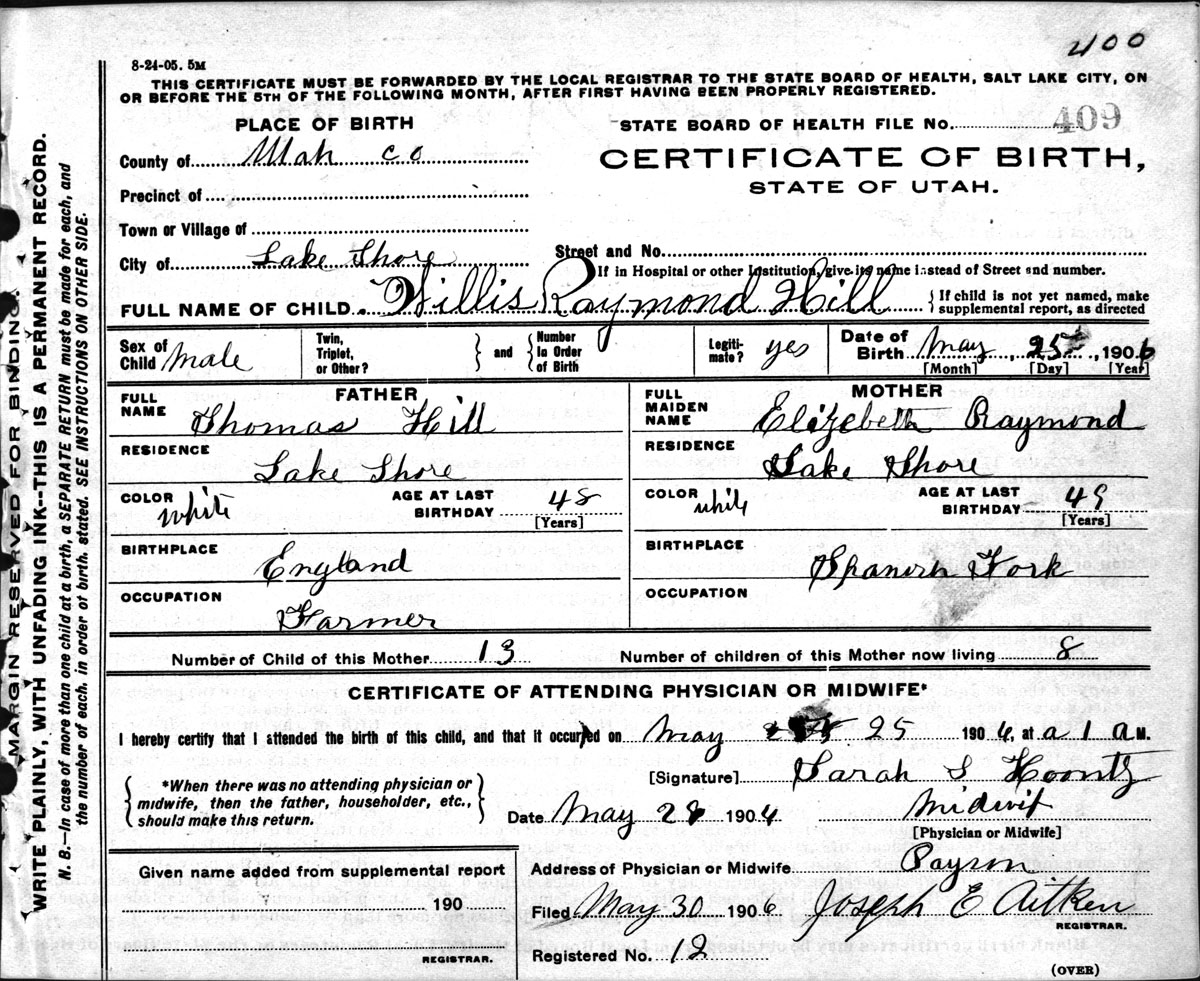 400
8-24-05. 5M
THIS CERTIFICATE MUST BE FORWARDED BY THE LOCAL REGISTRAR TO THE STATE BOARD OF HEALTH, SALT LAKE CITY, ON
OR BEFORE THE 5TH OF THE FOLLOWING MONTH, AFTER FIRST HAVING BEEN PROPERLY REGISTERED.
PLACE OF BIRTH
STATE BOARD OF HEALTH FILE NO. 409
County of Utah co
CERTIFICATE OF BIRTH,
STATE OF UTAH.
Precinct of
Town or Village of
City of Lake Shore
Street and No.
If in Hospital or other Institution, give its name instead of Street and number.
FULL NAME OF CHILD Willis Raymond Hill
{If child is not yet named, make
supplemental report, as directed
Sex of
Child Male
Twin,
Triplet,
or Other?
} and {
Number
in Order
of Birth
Legiti-
mate? yes
Date of
Birth May, 25, 1906
[Month] [Day] [Year]
FATHER
FULL
NAME
Thomas Hill
RESIDENCE
Lake Shore
COLOR white
AGE AT LAST
BIRTHDAY 48
[Years]
BIRTHPLACE
England
OCCUPATION
Farmer
MOTHER
FULL
MAIDEN
NAME
Elizebeth Raymond
RESIDENCE
Lake Shore
COLOR white
AGE AT LAST
BIRTHDAY 49
[Years]
BIRTHPLACE
Spanish Fork
OCCUPATION
Number of Child of this Mother 13
Number of children of this Mother now living 8
CERTIFICATE OF ATTENDING PHYSICIAN OR MIDWIFE*
I hereby certify that I attended the birth of this child, and that it occurred on May 25 1906, at a 1 a M.
{*When there was no attending physician or
midwife, then the father, householder, etc.,
should make this return.}
[Signature] Sarah S Koontz
Date May 28 1906 Midwif
[Physician or Midwife]
Given name added from supplemental report
190
REGISTRAR.
Address of Physician or Midwife Payson
Filed May 30 1906 Joseph E Aitken
REGISTRAR.
Registered No. 12
(OVER)
MARGIN RESERVED FOR BINDING.
WRITE PLAINLY, WITH UNFADING INK--THIS IS A PERMANENT RECORD.
N. B.—In case of more than one child at a birth, a SEPARATE RETURN must be made for each, and
the number of each, in order of birth, stated. SEE INSTRUCTIONS ON OTHER SIDE.